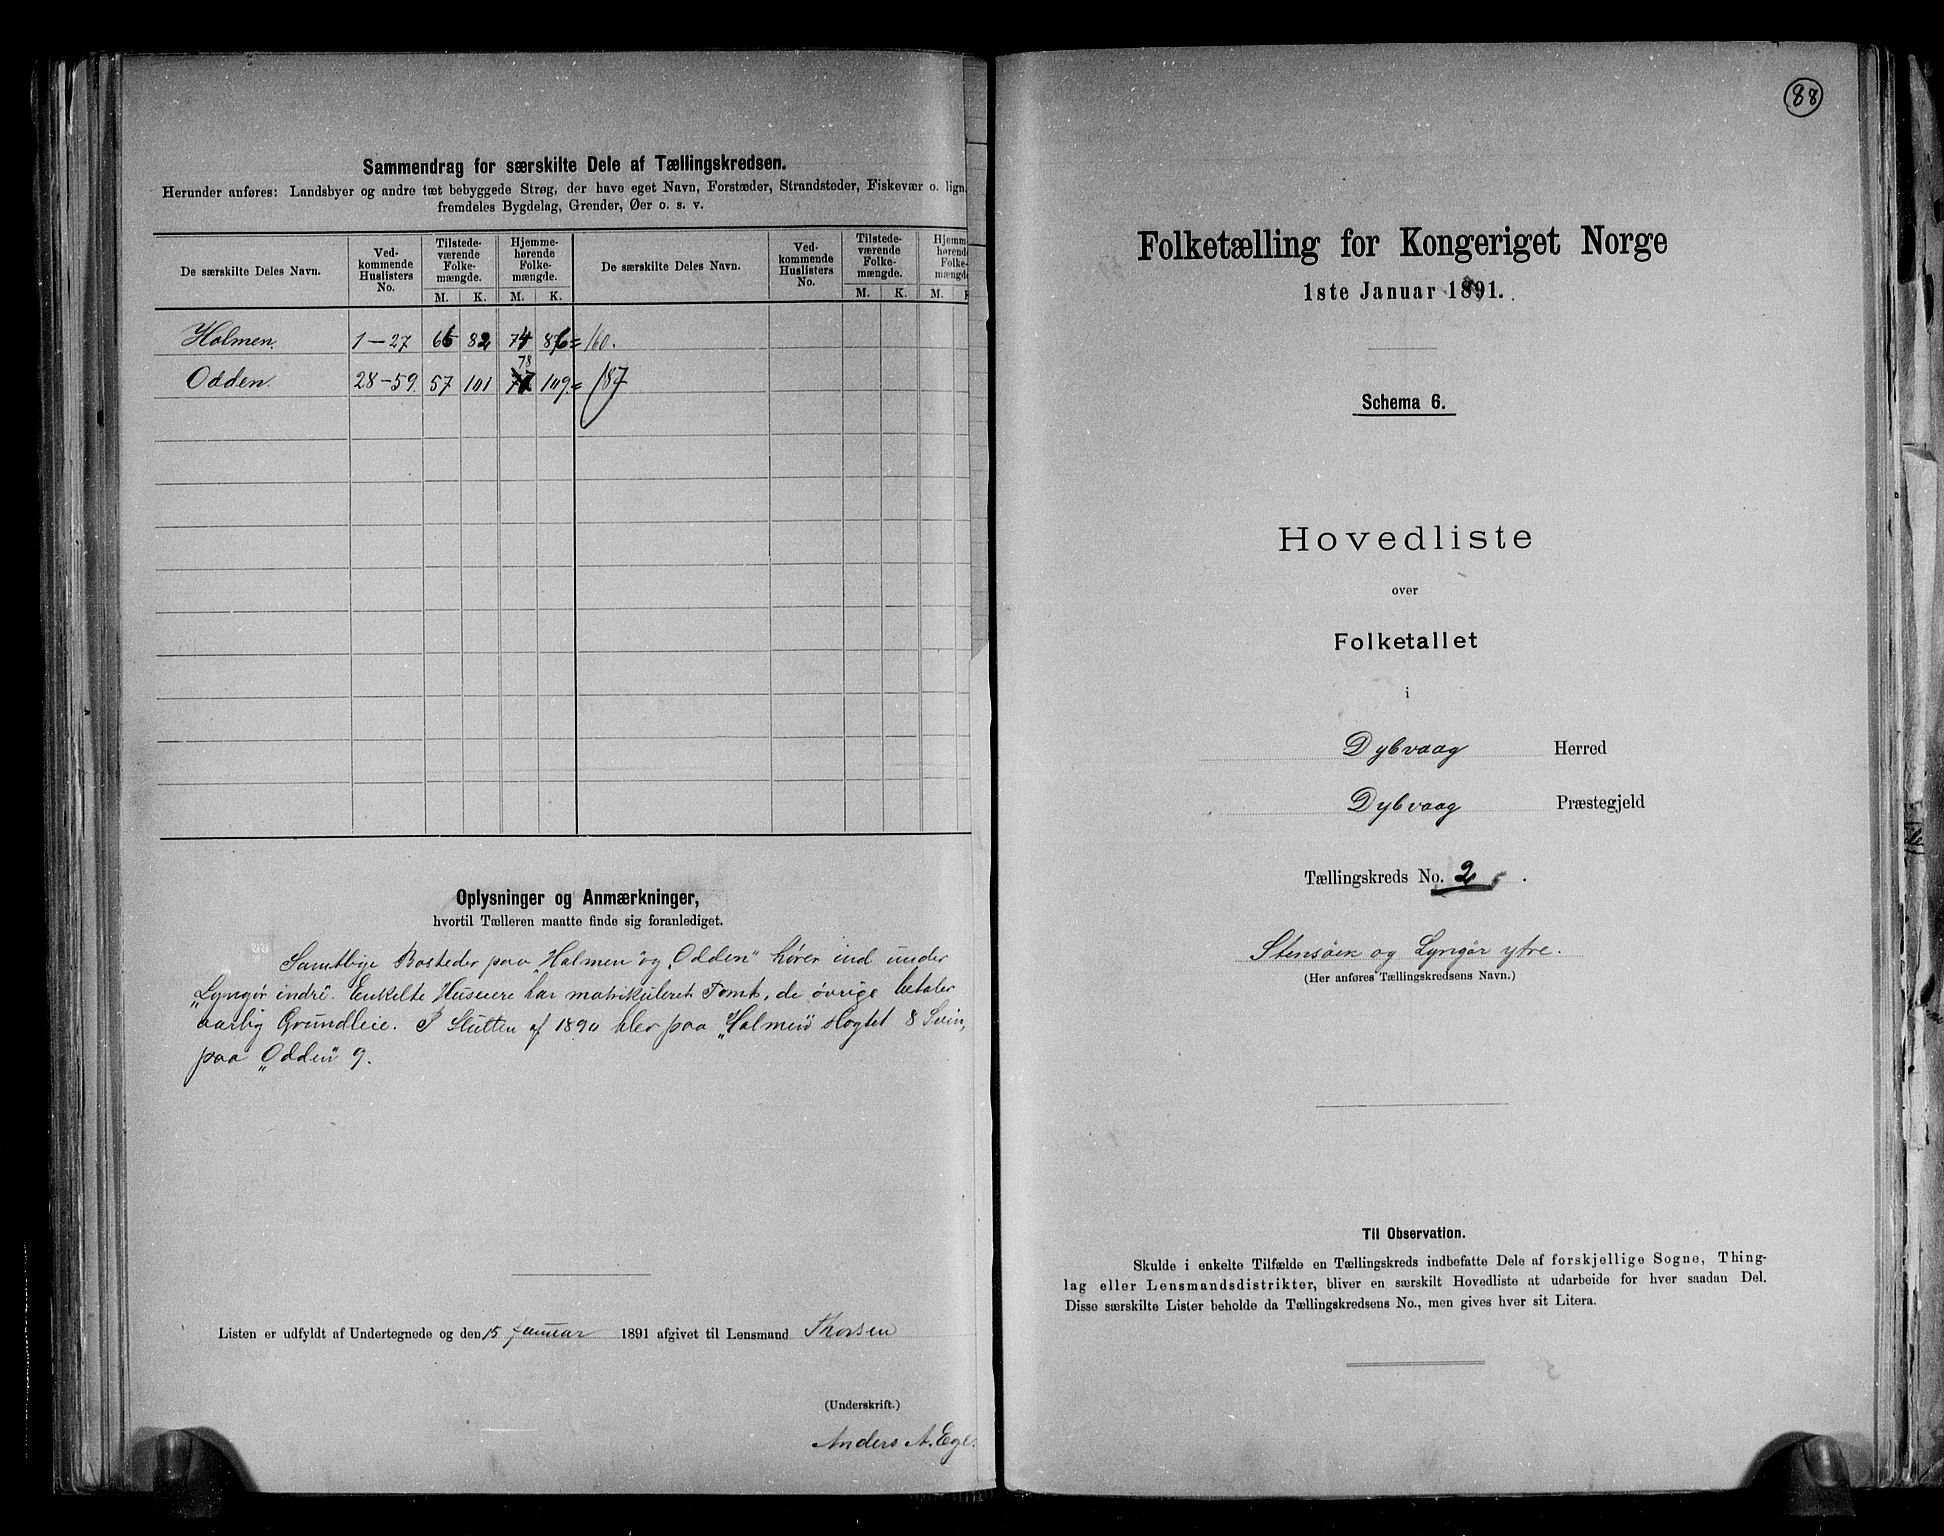 Sammendrag for særskilte Dele af Tællingskredsen.
Herunder anføres: Landsbyer og andre tæt bebyggede Strøg, der have eget Navn, Forstæder, Strandsteder, Fiskevær o. lign.
fremdeles Bygdelag, Grender, Øer o. s. v.
De særskilte Deles Navn. Ved-kommende Huslisters No. Tilstede-værende Folke-mængde. Hjemme-hørende Folke-mængde. De særskilte Deles Navn. Ved-kommende Huslisters No. Tilstede-værende Folke-mængde. Hjemm hørende Folke- mængde
M. K. M. K. M. K. M. K
Holmen. 1-27 66 82 74 86 = 160.
78
Odden. 28-59. 57 101 109. = 187
Oplysninger og Anmærkninger,
hvortil Tælleren maatte finde sig foranlediget.
Samtlige Bosteder paa „Holmen" og „Odden" hører ind under
„Lyngør indre". Enkelte Huseiere har matrikuleret Tomt, de øvrige betaler
aarlig Grundleie. I Slutten af 1890 blev paa „Holmen" slagtet 8 Svin,
paa „Odden" 9.
Listen er udfyldt af Undertegnede og den 15 Januar 1891 afgivet til Lensmand
(Underskrift.)
Anders A.
88
Folketælling for Kongeriget Norge
1ste Januar 1891.
Schema 6.
Hovedliste
over
Folketallet
i
Dybvaag Herred
Dybvaag Præstegjeld
Tællingskreds No. 2.
Stensøen og Lyngør ytre.
(Her anføres Tællingskredsens Navn.)
Til Observation.
Skulde i enkelte Tilfælde en Tællingskreds indbefatte Dele af forskjellige Sogne, Thing-
lag eller Lensmandsdistrikter, bliver en særskilt Hovedliste at udarbeide for hver saadan Del.
Disse særskilte Lister beholde da Tællingskredsens No., men gives hver sit Litera.